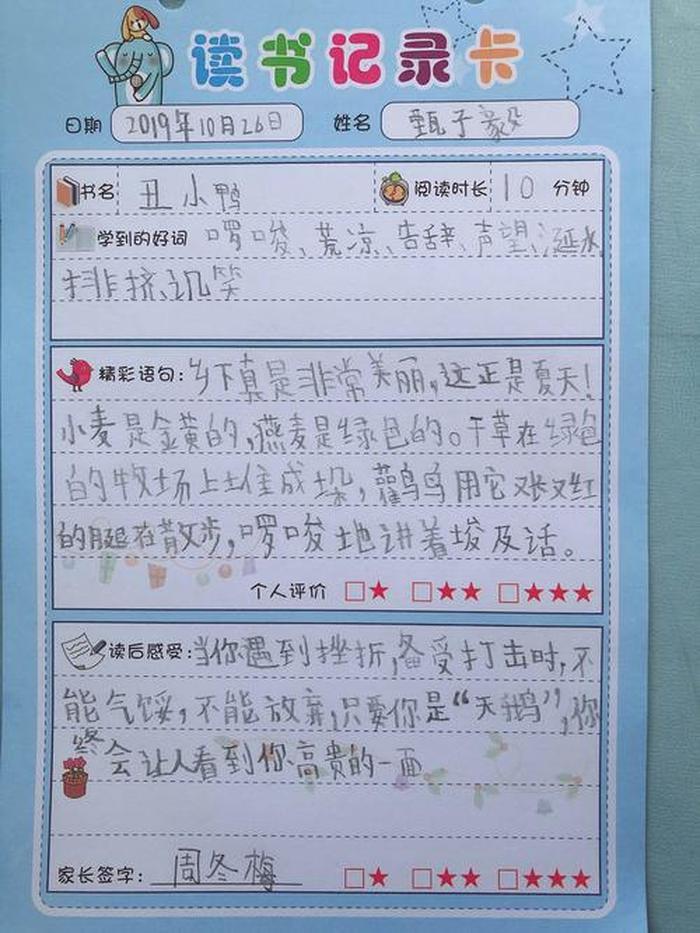 读书记录卡
日期 2019年10月26日 姓名 甄子毅
书名 丑小鸭 阅读时长 10 分钟
学到的好词 啰唆、荒凉、告辞、声望、涎水
排挤、讥笑
精彩语句:乡下真是非常美丽,这正是夏天!
小麦是金黄的,燕麦是绿色的。干草在绿色
的牧场上堆成垛,鹳鸟用它又长又红
的腿在散步,啰唆地讲着埃及话。
个人评价 □★ □★★ □★★★
读后感受:当你遇到挫折,备受打击时,不
能气馁,不能放弃,只要你是“天鹅”,你
终会让人看到你高贵的一面
家长签字: 周冬梅 □★ □★★ □★★★